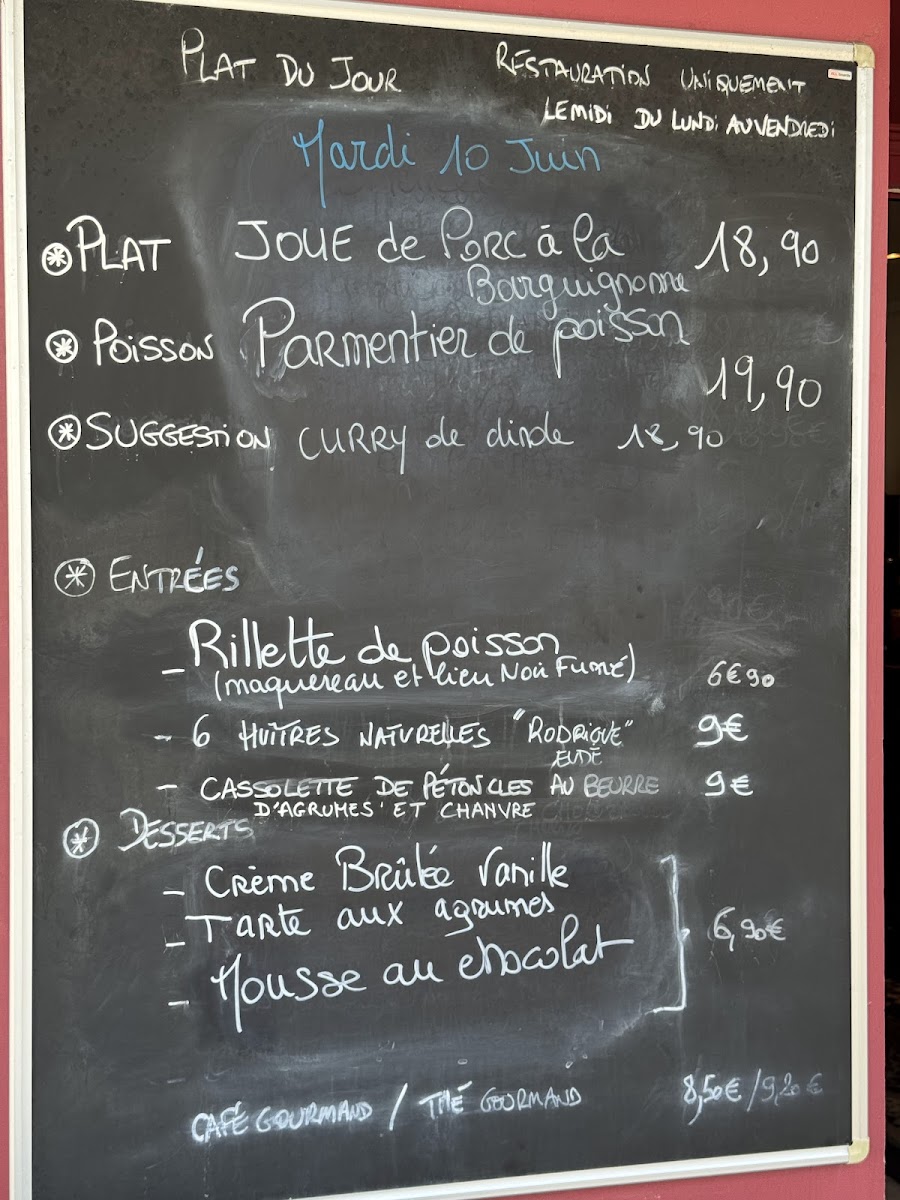 PLAT DU JOUR
RESTAURATION UNIQUEMENT
LE MIDI DU LUNDI AU VENDREDI
Mardi 10 Juin
PLAT JOUE de PORC à la 18,90
Bourguignonne
POISSON PARMENTIER de poisson
19,90
SUGGESTION CURRY de dinde 18,90
ENTRÉES
- Rillette de poisson
(maquereau et lieu Noir Fumé) 6€90
- 6 HUÎTRES NATURELLES "RODRIGUE" 9€
- CASSOLETTE DE PÉTONCLES AU BEURRE 9€
D'AGRUMES ET CHANVRE
DESSERTS
- Crème Brûlée Vanille
- TARTE aux agrumes 6,90€
- Mousse au chocolat
CAFÉ GOURMAND / THÉ GOURMAND 8,50€ / 9,20€